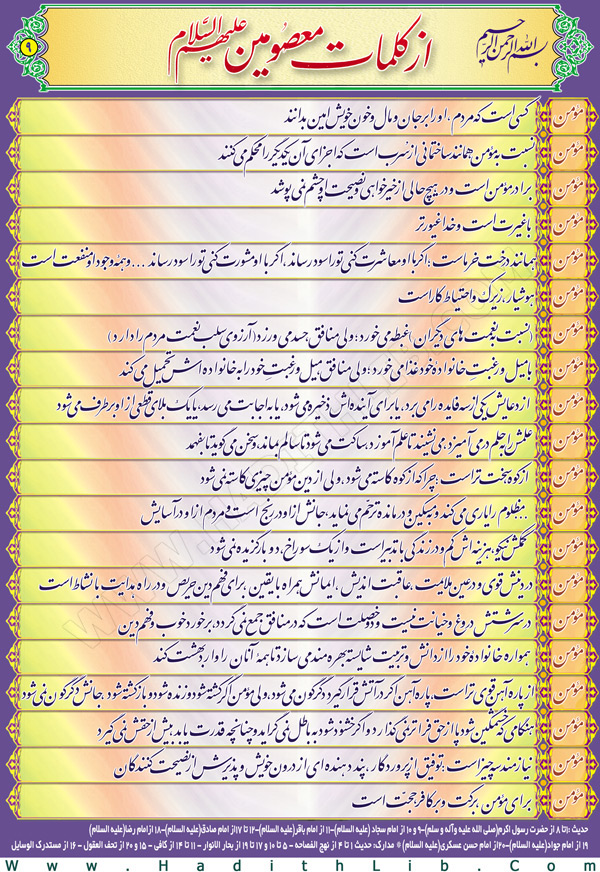 بسم الله الرحمن الرحیم
از کلمات معصومین علیهم السّلام
۹
مؤمن کسی است که مردم، او را بر جان و مال و خون خویش امین بدانند
مؤمن نسبت به مؤمن همانند ساختمانی از سرب است که اجزای آن یکدیگر را محکم می کنند
مؤمن برادر مؤمن است و در هیچ حالی از خیرخواهی و نصیحت او چشم نمی پوشد
مؤمن باغیرت است و خدا غیورتر
مؤمن همانند درخت خرماست؛ اگر با او معاشرت کنی تو را سود رساند، اگر با او مشورت کنی تو را سود رساند... و همه وجود او منفعت است
مؤمن هوشیار، زیرک و احتیاط کار است
مؤمن (نسبت به نعمت های دیگران) غبطه می خورد؛ ولی منافق حسد می ورزد (آرزوی سلب نعمت مردم را دارد)
مؤمن با میل و رغبتِ خانواده خود غذا می خورد؛ ولی منافق میل و رغبتِ خود را به خانواده اش تحمیل می کند
مؤمن از دعایش یکی از سه فایده را می برد، یا برای آینده اش ذخیره می شود، یا به اجابت می رسد، یا یک بلای قطعی از او برطرف می شود
مؤمن علمش را به حلم درمی آمیزد، می نشیند تا علم آموزد، ساکت می شود تا سالم بماند، و سخن می گوید تا بفهمد
مؤمن از کوه سخت تر است؛ چرا که از کوه کاسته می شود، ولی از دین مؤمن چیزی کاسته نمی شود
مؤمن ..مظلوم را یاری می کند و بر مسکین و درمانده ترحّم می نماید، جانش از او در رنج است و مردم از او در آسایش
مؤمن کمکش نیکو، هزینه اش کم و در زندگی با تدبیر است و از یک سوراخ، دو بار گزیده نمی شود
مؤمن در دینش قوی و در عین ملایمت، عاقبت اندیش، ایمانش همراه با یقین، برای فهم دین حریص و در راه هدایت با نشاط است
مؤمن در سرشتش دروغ و خیانت نیست و دو خصلت است که در منافق جمع نمی گردد، برخورد خوب و فهم دین
مؤمن همواره خانواده خود را از دانش و تربیت شایسته بهره مند می سازد تا همه آنان را وارد بهشت کند
مؤمن از پاره آهن قوی تر است، پاره آهن اگر در آتش قرار گیرد دگرگون می شود، ولی مؤمن اگر کشته شود و زنده شود و باز کشته شود، جانش دگرگون نمی شود
مؤمن هنگامی که خشمگین شود پا از حق فراتر نمی گذارد و اگر خشنود شود به باطل نمی گراید و چنانچه قدرت یابد بیش از حقش نمی گیرد
مؤمن نیازمند سه چیز است؛ توفیق از پروردگار، پند دهنده ای از درون خویش و پذیرش از نصیحت کنندگان
مؤمن برای مؤمن، برکت و بر کافر حجّت است
حدیث :۱تا ۸ از حضرت رسول اکرم(صلی الله علیه وآله و سلم)-۹ و ۱۰ از امام سجاد (علیه السلام)-۱۱ از امام باقر(علیه السلام)-۱۲ تا ۱۷از امام صادق(علیه السلام)-۱۸ ازامام رضا(علیه السلام)
۱۹ از امام جواد(علیه السلام)-۲۰از امام حسن عسکری(علیه السلام) * مدارک: حدیث ۱ تا ۴ از نهج الفصاحه - ۵ تا ۱۰ و ۱۷ تا ۱۹ از بحار الانوار - ۱۱ تا ۱۴ از کافی - ۱۵ و ۲۰ از تحف العقول - ۱۶ از مستدرک الوسایل
Www.HadithLib.Com